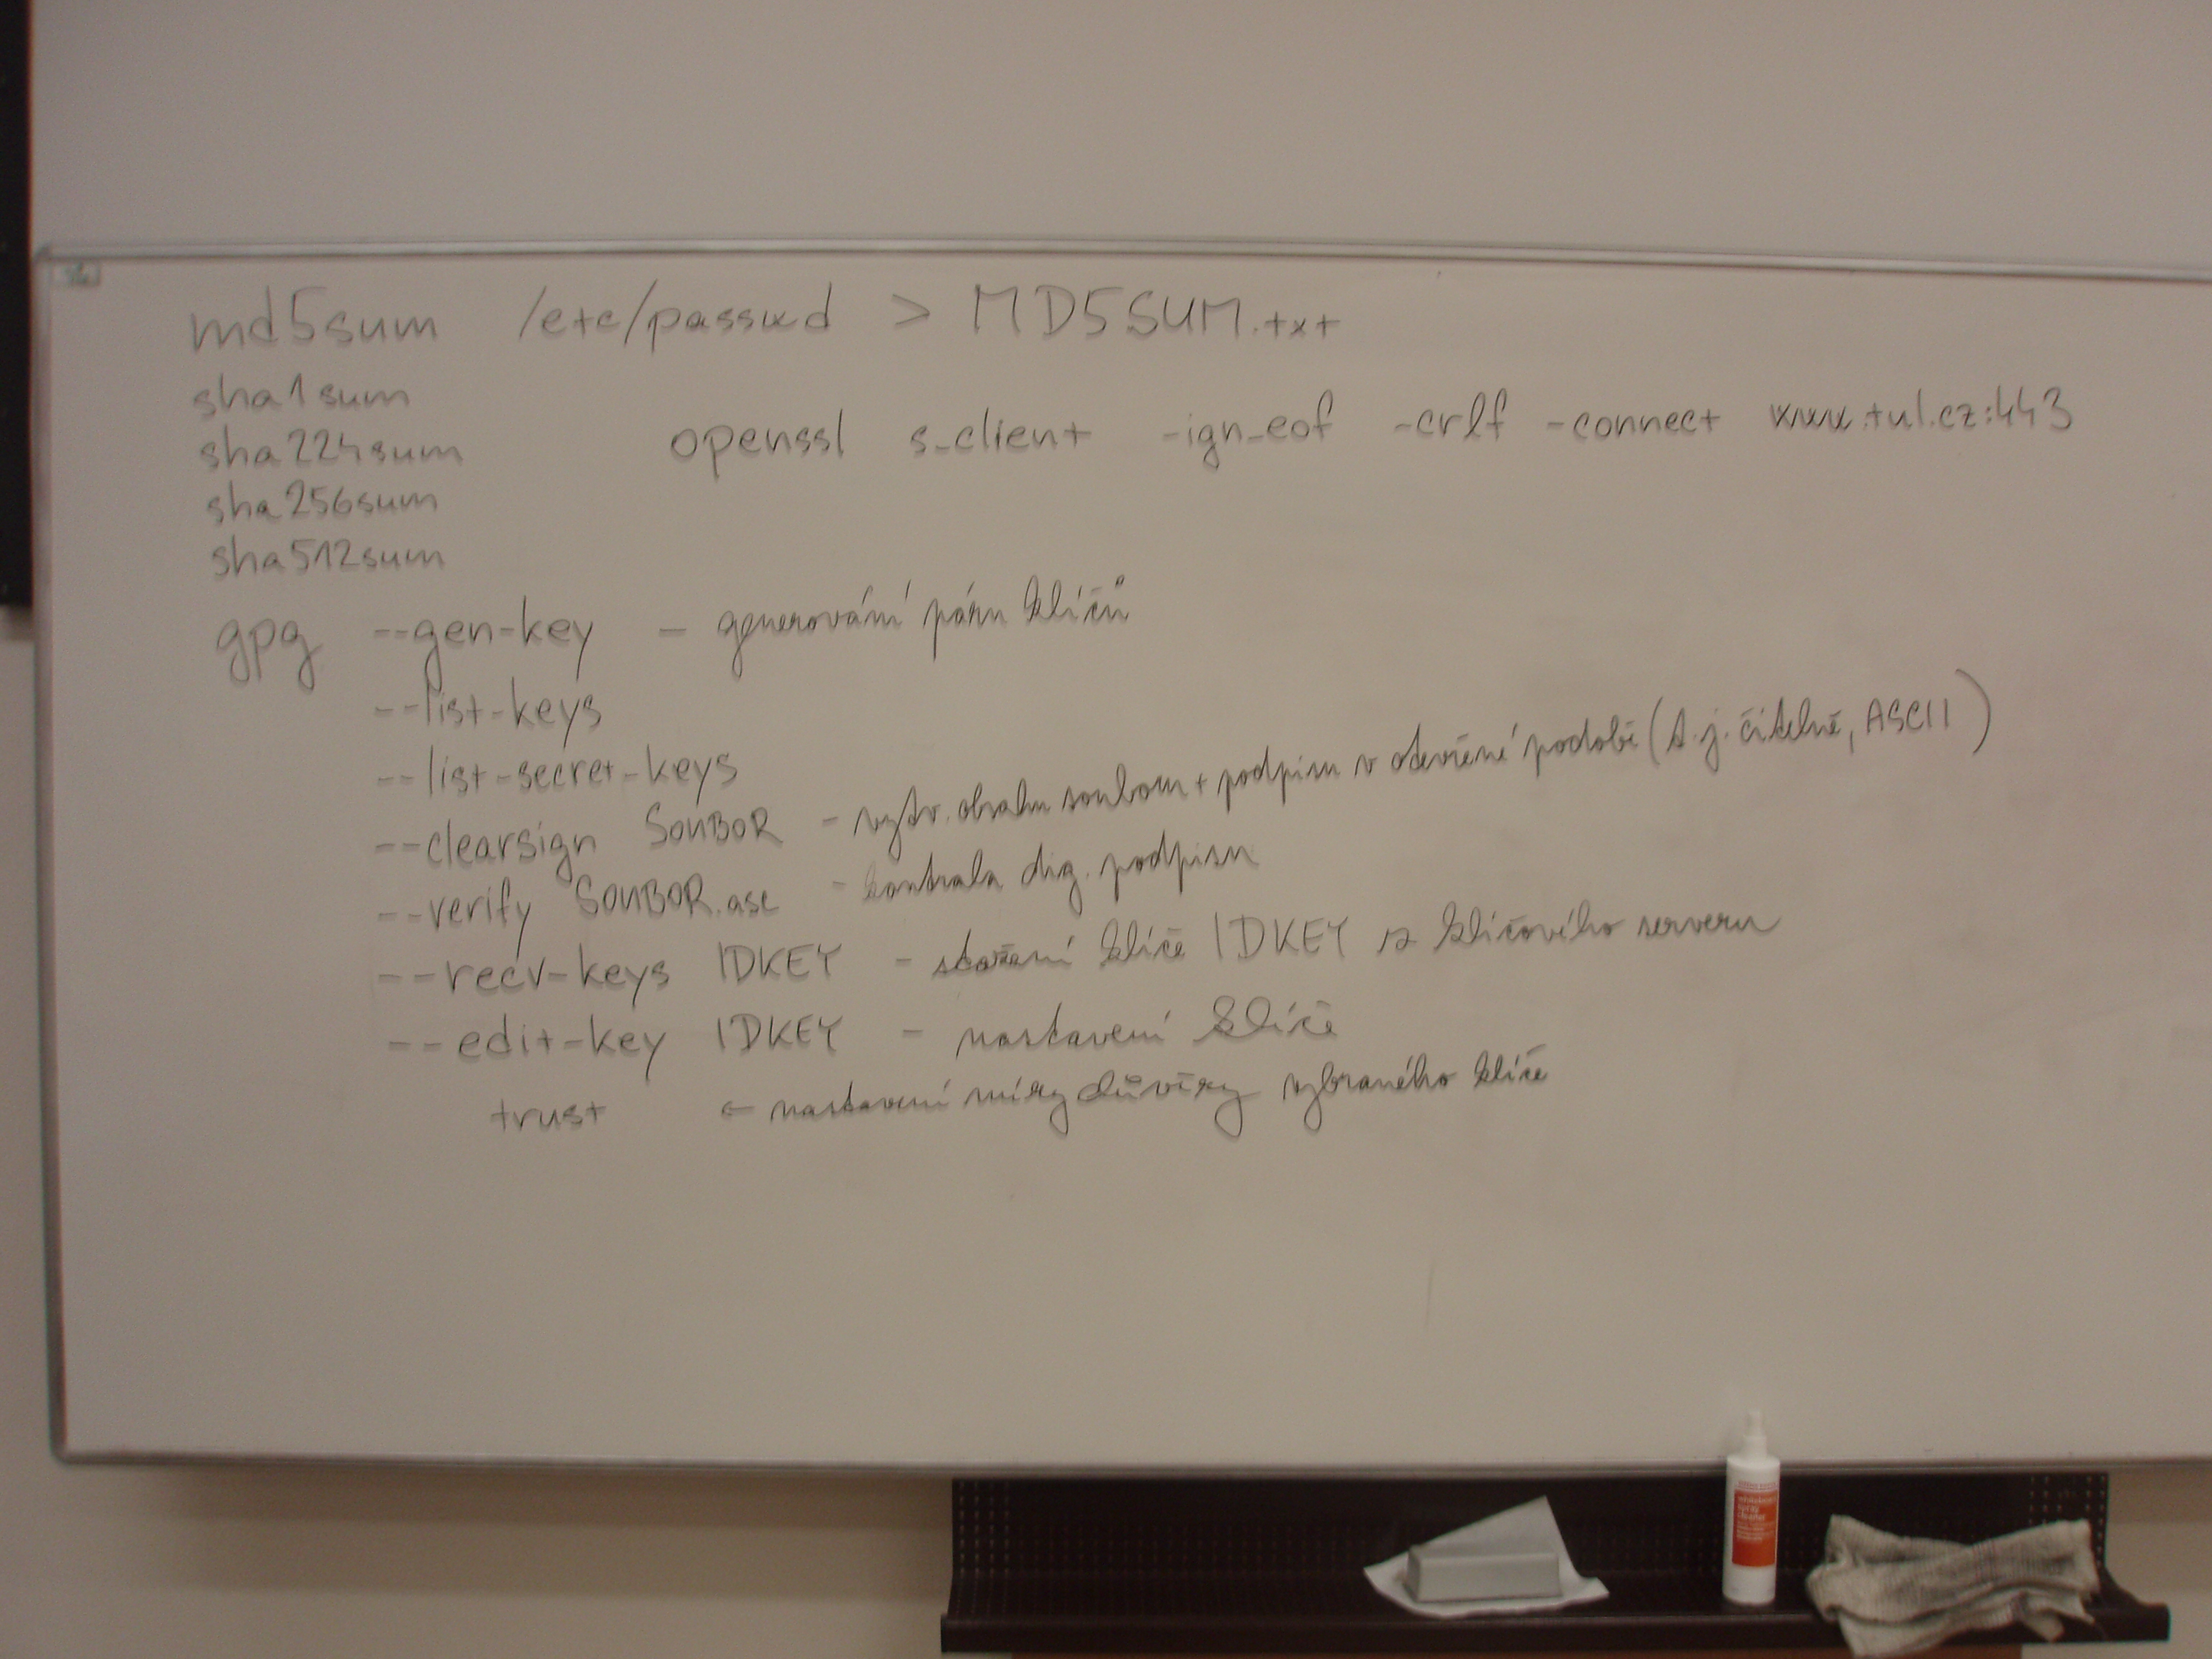 md5sum /etc/passwd > MD5SUM.txt
sha1sum
openssl s_client -ign_eof -crlf -connect www.tul.cz:443
sha224sum
sha256sum
sha512sum
gpg --gen-key - generování páru klíčů
--list-keys
--list-secret-keys
--clearsign SOUBOR - vytv. obsahu souboru + podpisu v otevřené podobě (t.j. čitelné, ASCII)
--verify SOUBOR.asc - kontrola dig. podpisu
--recv-keys IDKEY - stažení klíče IDKEY z klíčového serveru
--edit-key IDKEY - nastavení klíče
trust ← nastavení míry důvěry vybraného klíče
whiteboard
spray
cleaner